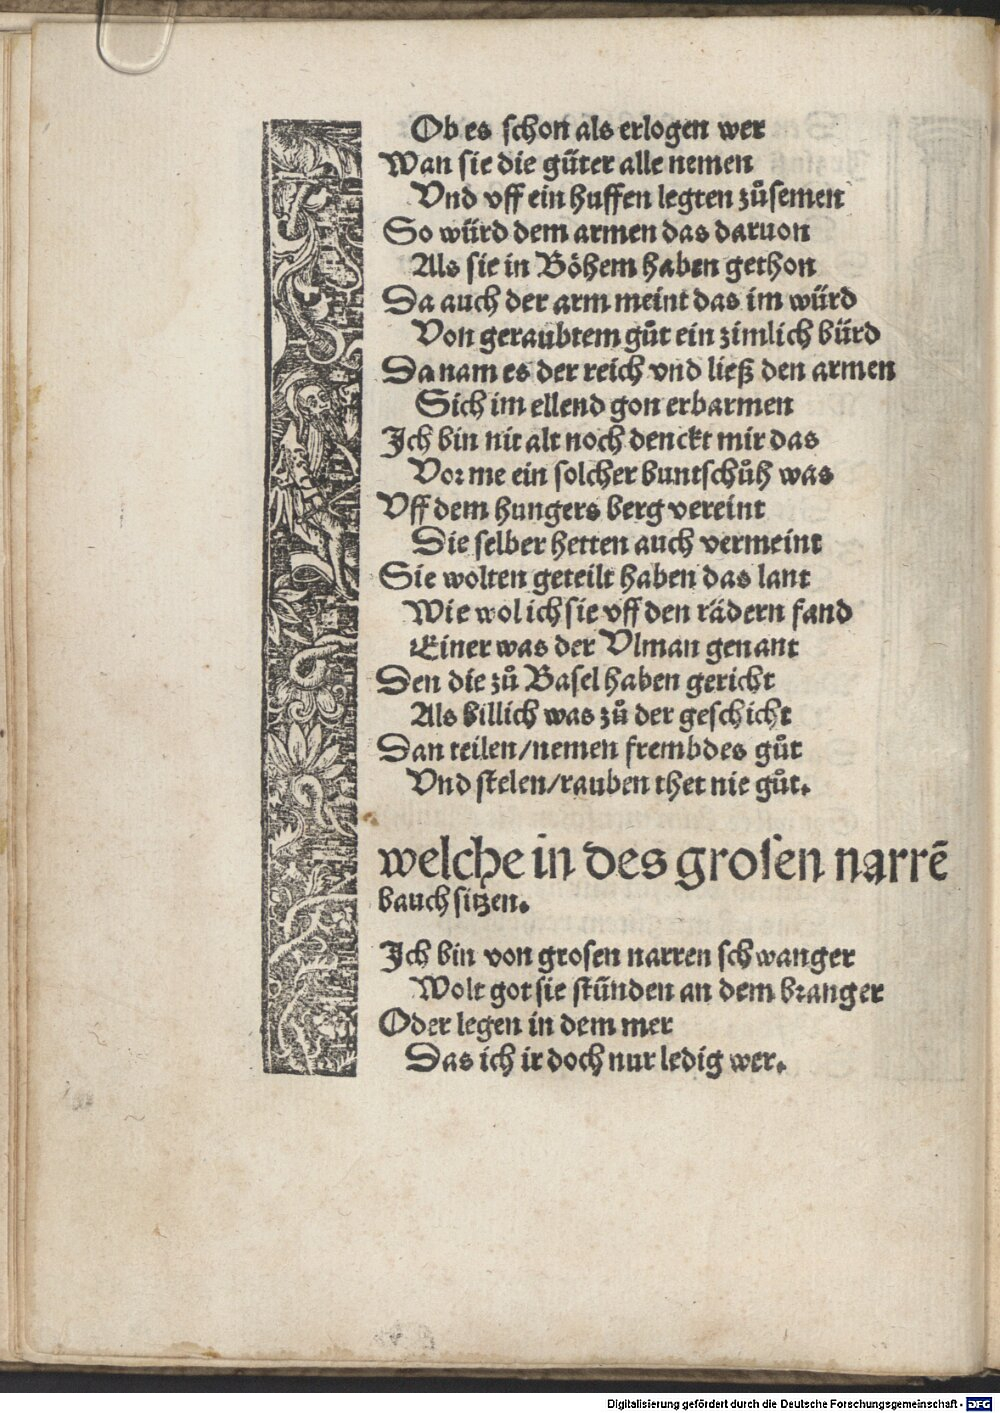 Ob es schon als erlogen wer
Wan sie die guͤter alle nemen
Vnd vff ein huffen legten zuͦsemen
So würd dem armen das daruon
Als sie in Böhem haben gethon
Da auch der arm meint das im würd
Von geraubtem guͦt ein zimlich bürd
Da nam es der reich vnd ließ den armen
Sich im ellend gon erbarmen
Ich bin nit alt noch denckt mir das
Vor me ein solcher buntschuͦh was
Vff dem hungers berg vereint
Die selber hetten auch vermeint
Sie wolten geteilt haben das lant
Wie wol ich sie vff den rädern fand
Einer was der Vlman genant
Den die zuͦ Basel haben gericht
Als billich was zuͦ der geschicht
Dan teilen/nemen frembdes guͦt
Vnd stelen/rauben thet nie guͦt.
welche in des grosen narrē
bauch sitzen.
Ich bin von grosen narren schwanger
Wolt got sie stuͤnden an dem branger
Oder legen in dem mer
Das ich ir doch nur ledig wer.
Digitalisierung gefördert durch die Deutsche Forschungsgemeinschaft - DFG